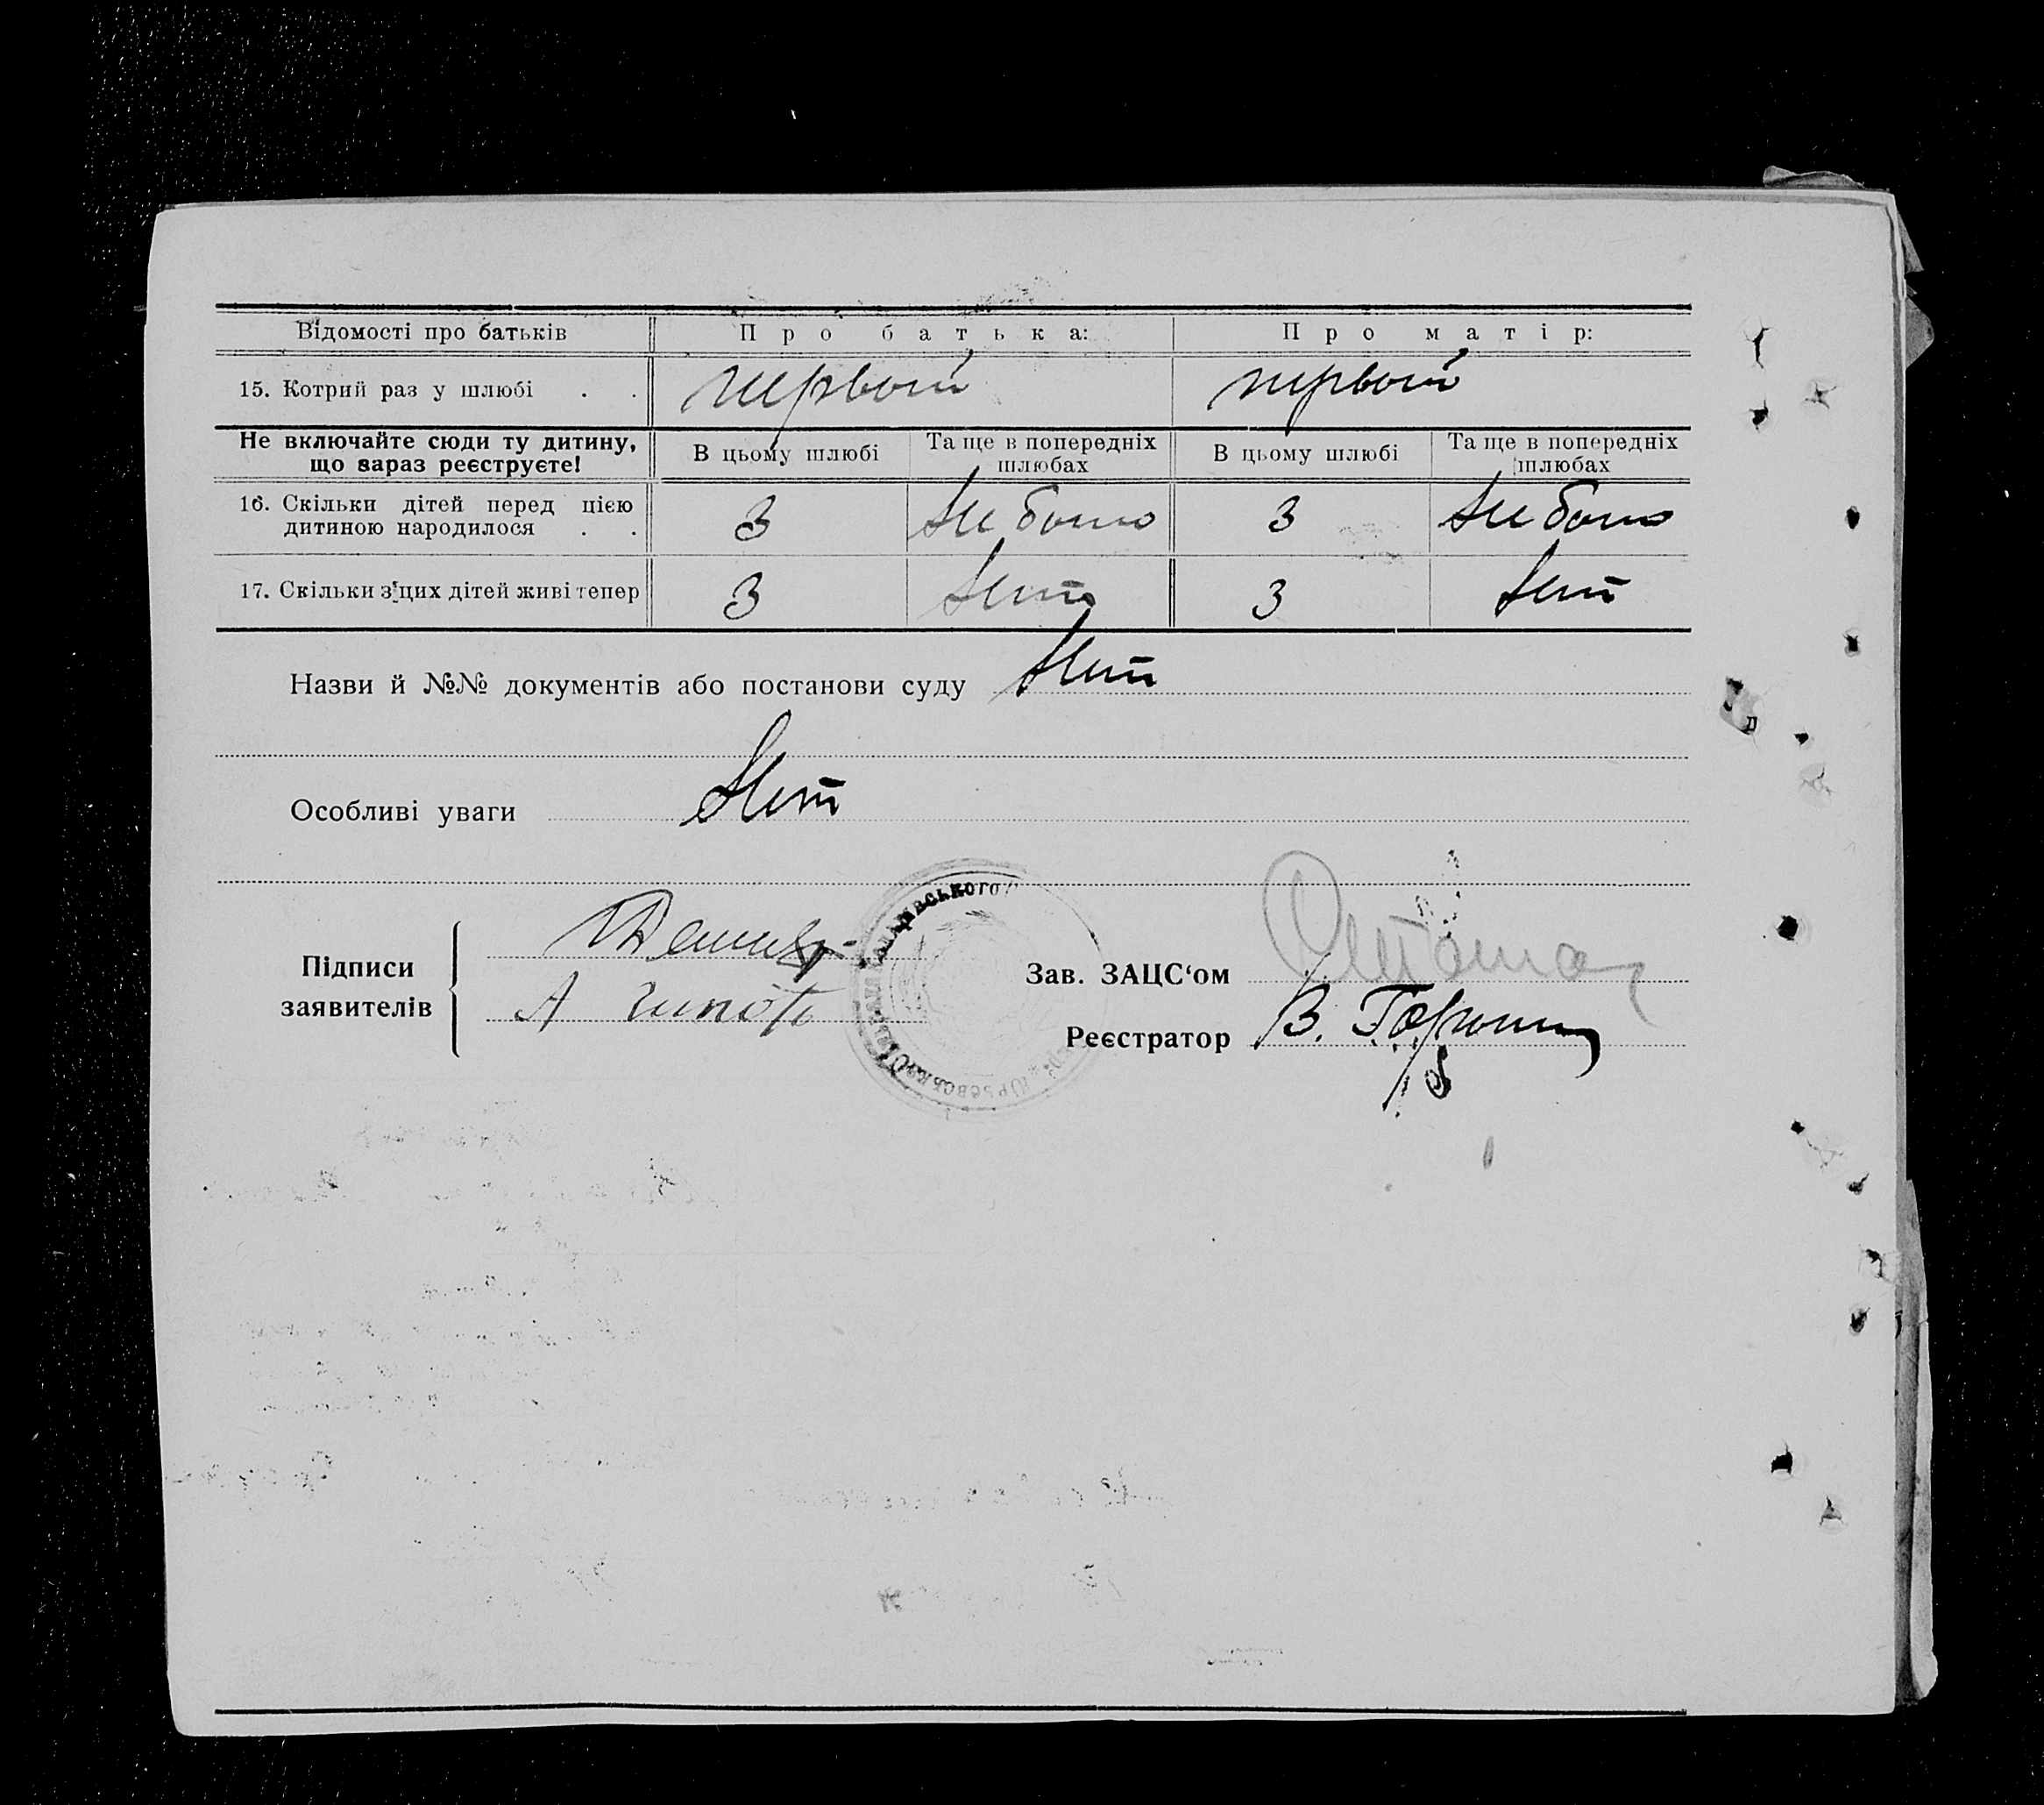 Відомості про батьків Про батька: Про матір:
15. Котрий раз у шлюбі . . первый первый
Не включайте сюди ту дитину, що зараз реєструєте! В цьому шлюбі Та ще в попередніх шлюбах В цьому шлюбі Та ще в попередніх шлюбах
16. Скільки дітей перед цією дитиною народилося . . 3 не было 3 не было
17. Скільки з цих дітей живі тепер 3 нет 3 нет
Назви й №№ документів або постанови суду Нет
Особливі уваги Нет
Підписи заявителів
А
Зав. ЗАЦС‘ом
Реєстратор В.